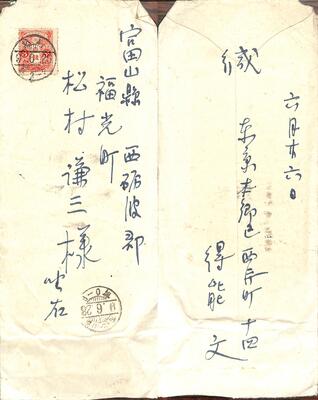 富山縣西砺波郡
福光町
松村謙三様
緘
六月廿六日
東京本郷区西片町十四
得能文